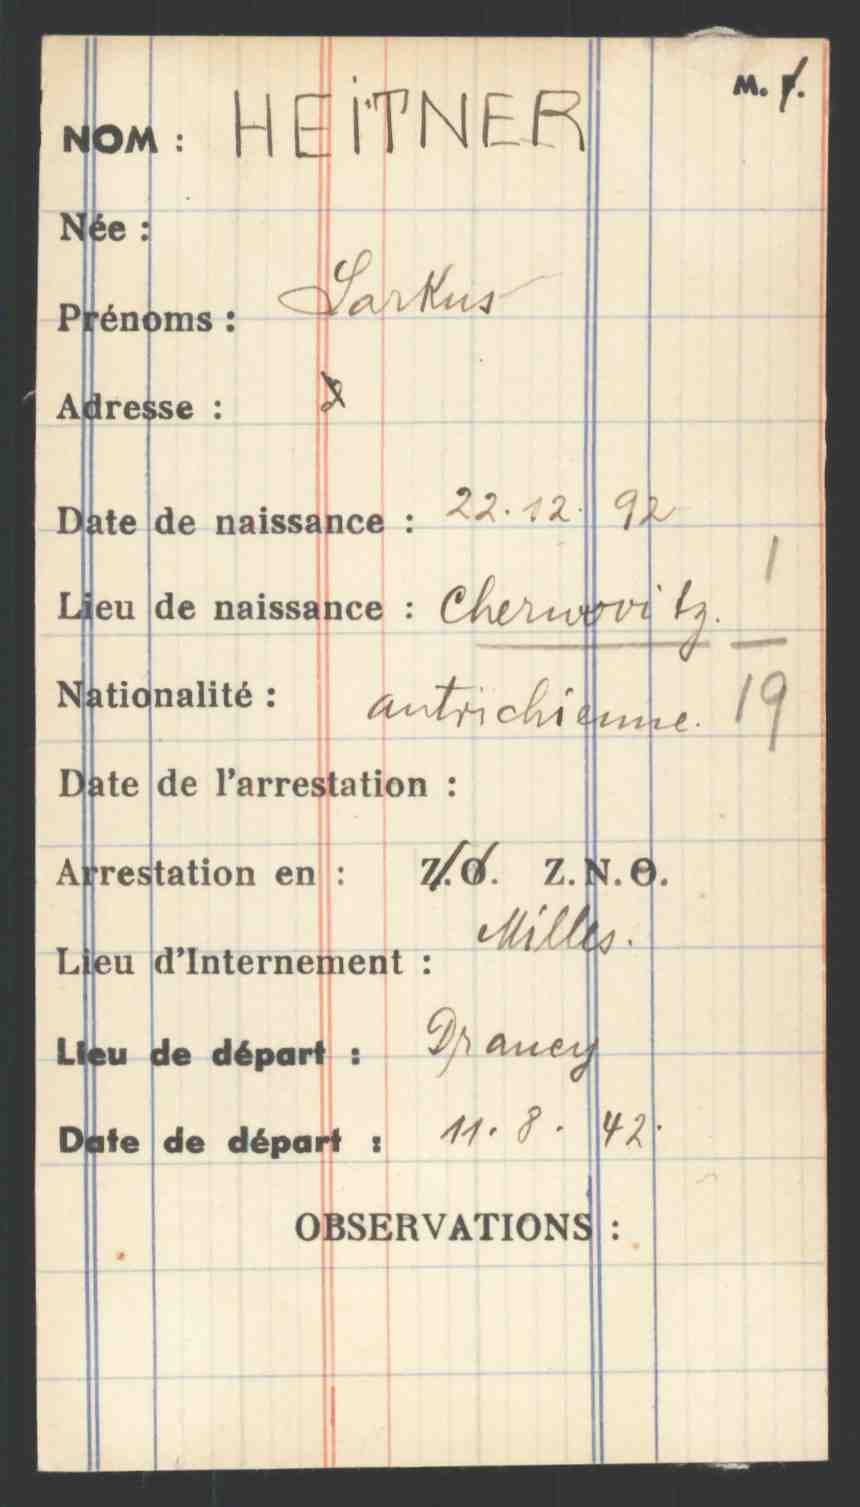 M. F.
NOM : HEITNER
Née :
Prénoms : Sarkus
Adresse :
Date de naissance : 22. 12. 92
1
Lieu de naissance : Cherwovitz.
Nationalité : autrichienne. 19
Date de l'arrestation :
Arrestation en : Z.O. Z.N.O.
Lieu d'Internement : Milles.
Lieu de départ : Drancy
Date de départ : 11. 8. 42.
OBSERVATIONS :